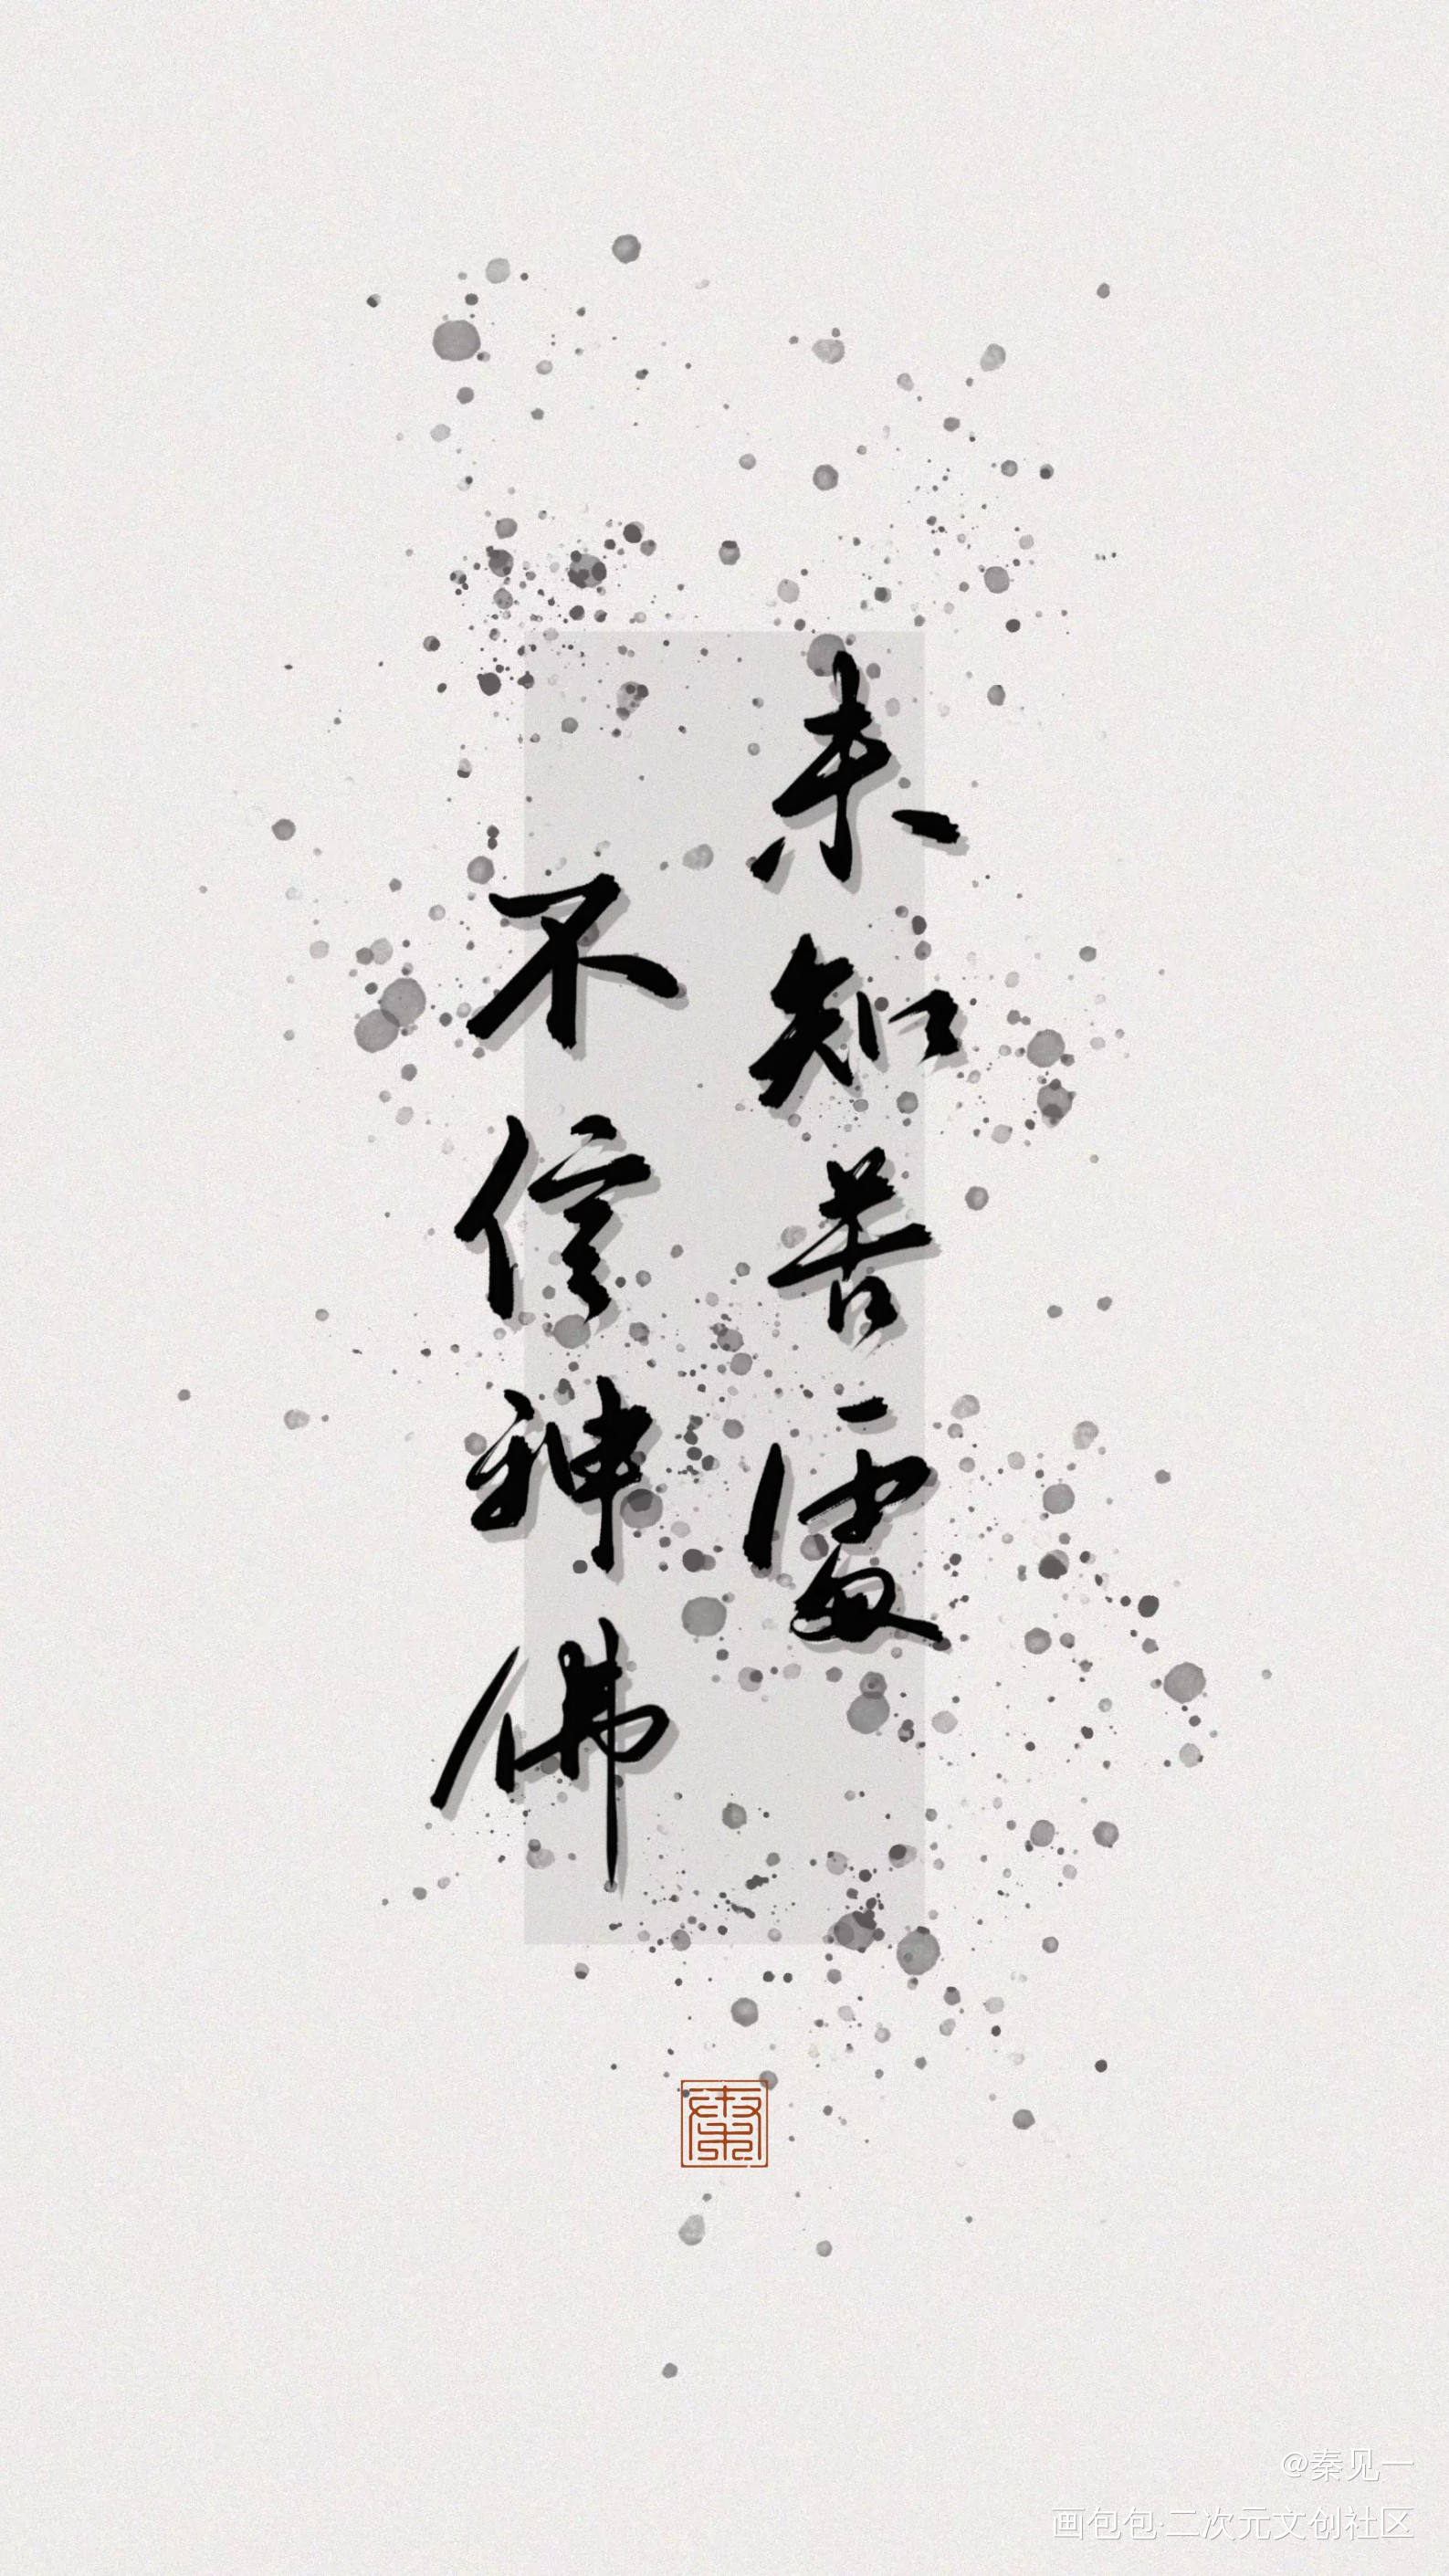 未知苦處
不信神佛
秦
@秦见一
画包包·二次元文创社区